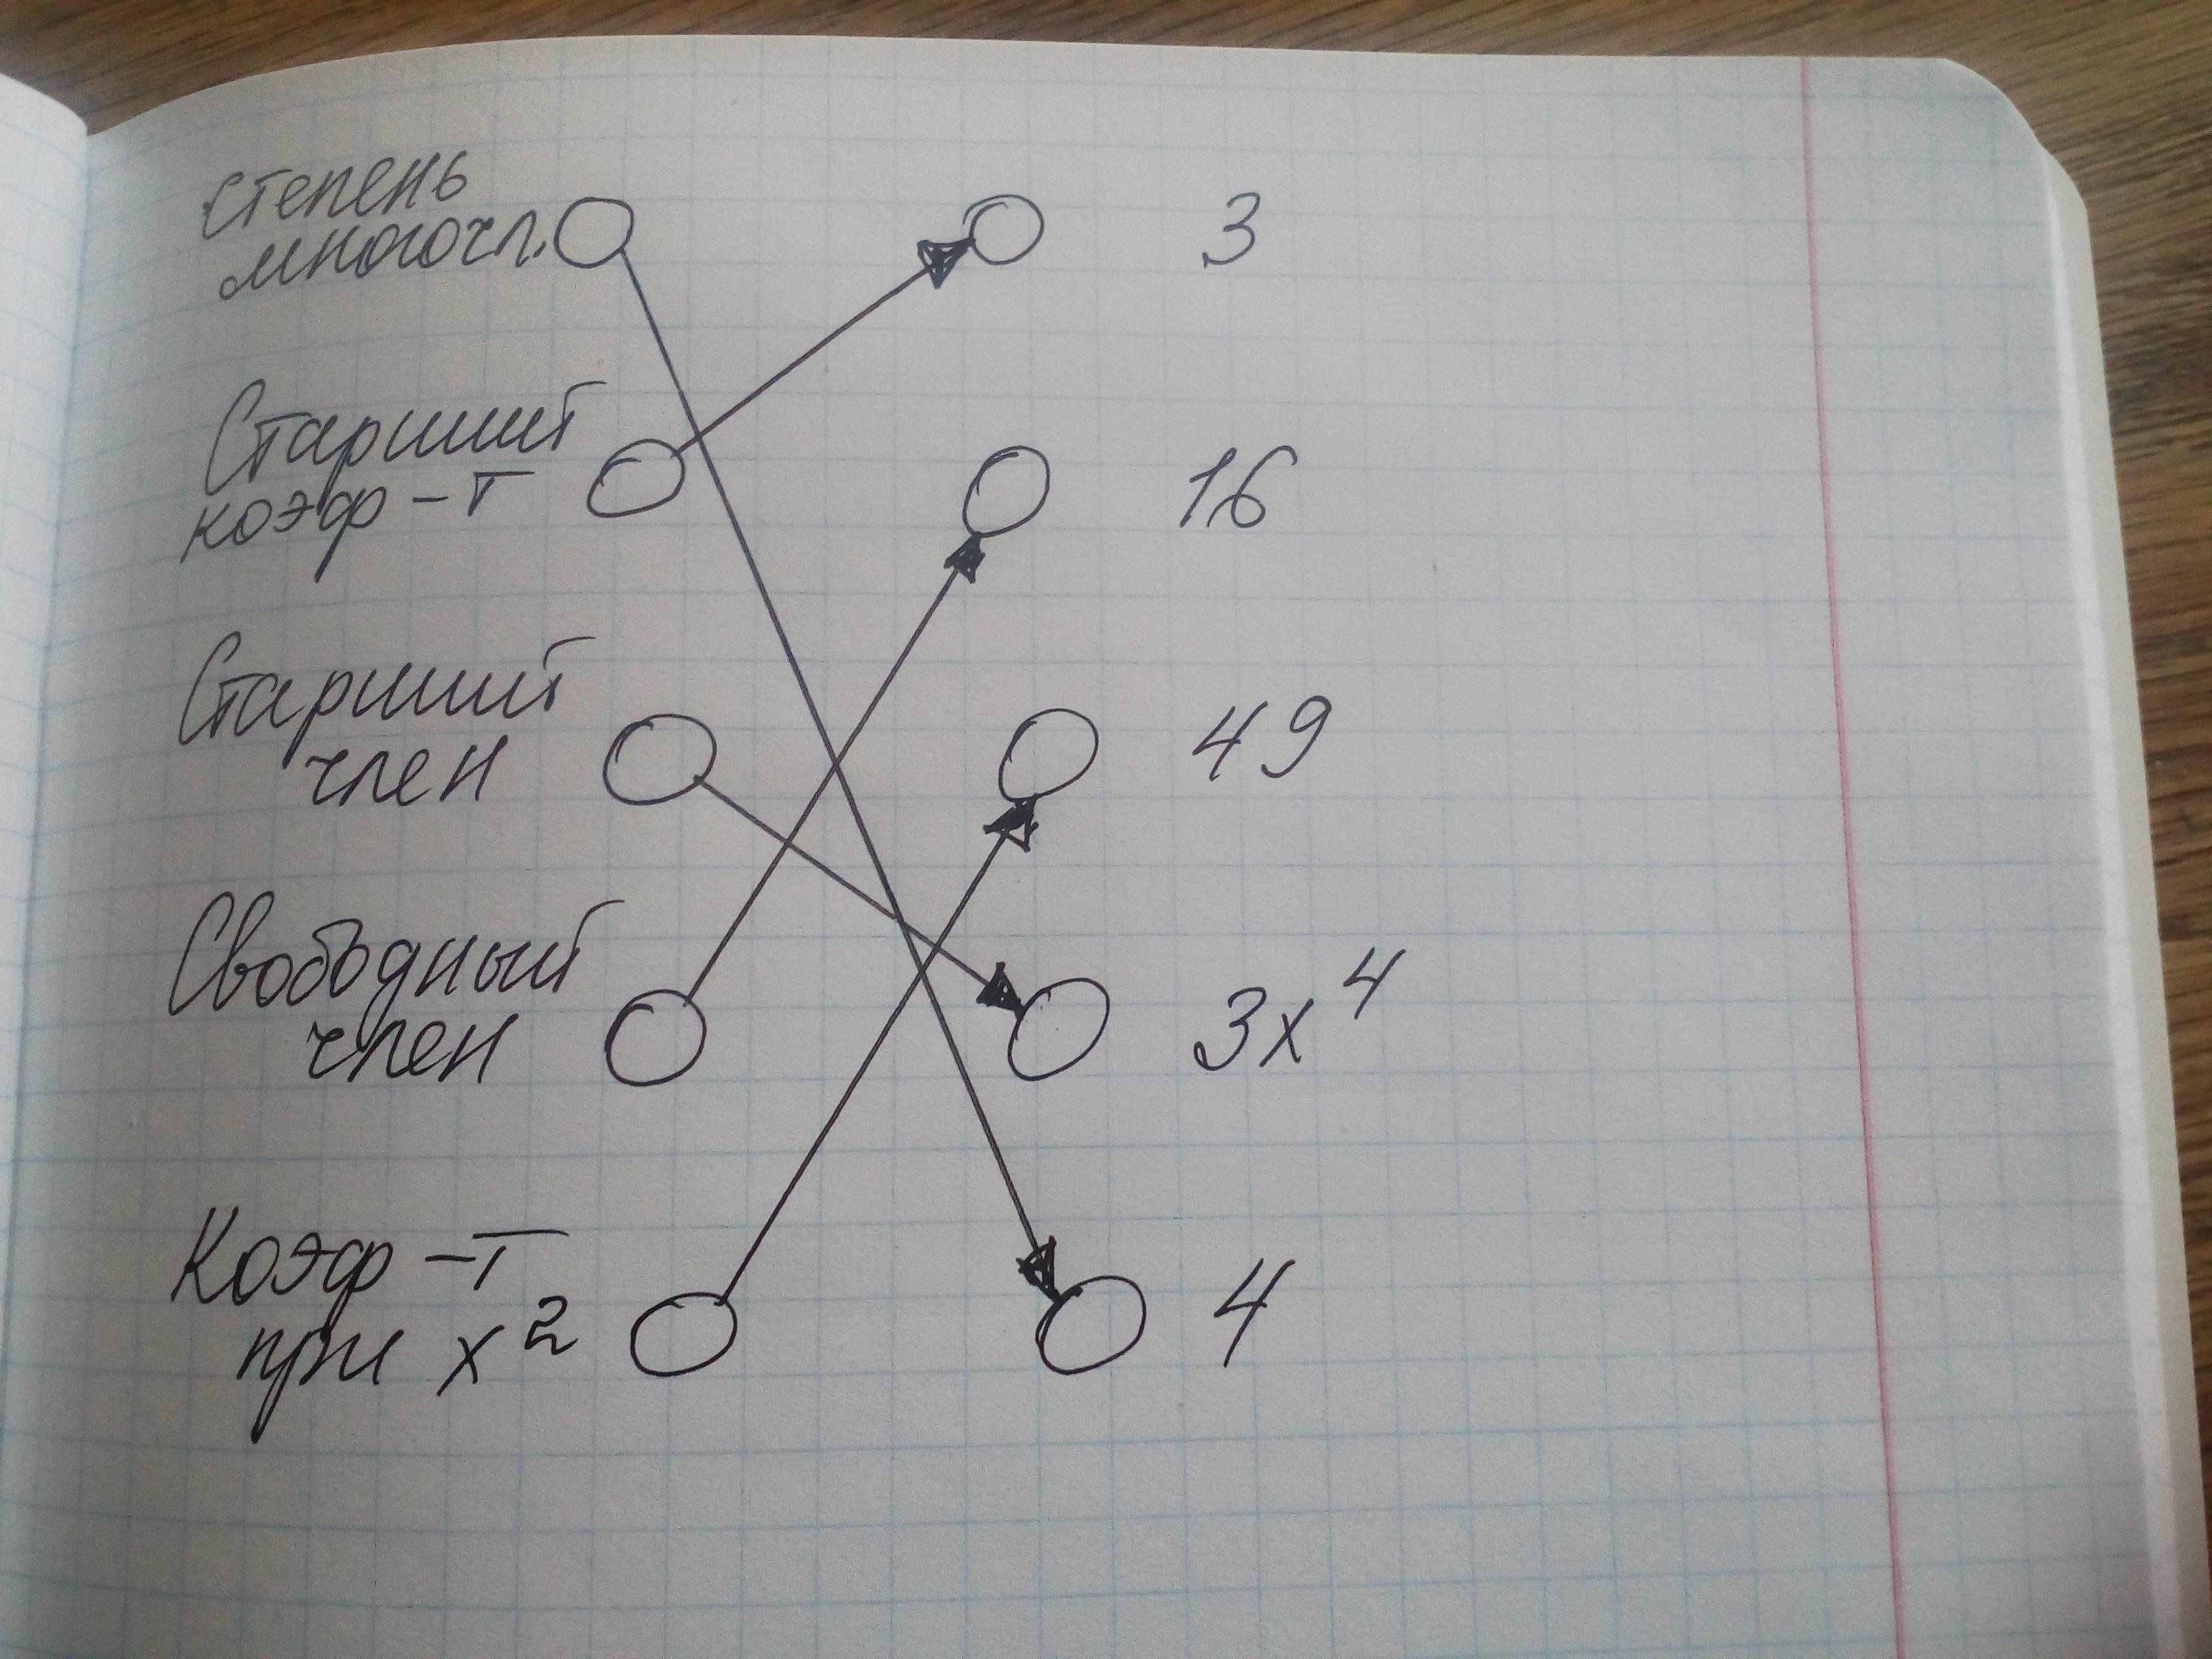 Степень
многочл.
3
Старший
коэф-т
16
Старший
член
49
Свободный
член
3x⁴
Коэф-т
при x²
4